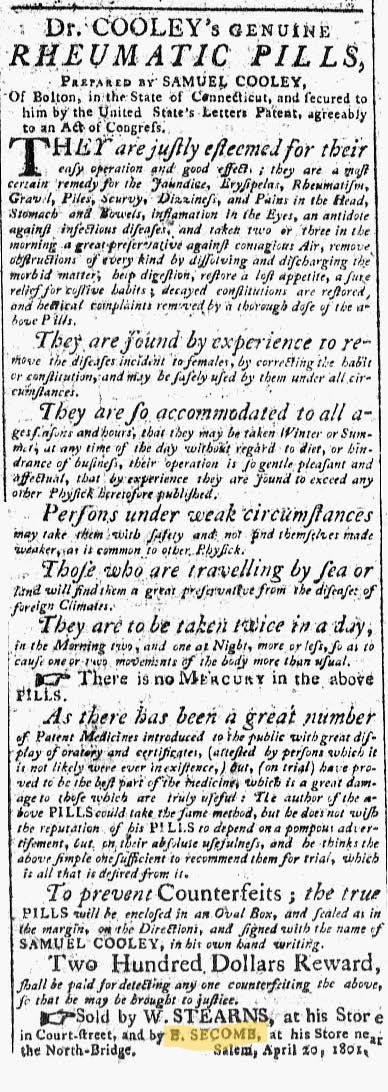 Dr. COOLEY's GENUINE
RHEUMATIC PILLS,
PREPARED BY SAMUEL COOLEY,
Of Bolton, in the State of Connecticut, and secured to
him by the United State's Letters Patent, agreeably
to an Act of Congreſs.
THEY are juſtly eſteemed for their
eaſy operation and good effect; they are a moſt
certain remedy for the Jaundice, Eryſipelas, Rheumatiſm,
Gravel, Piles, Scurvy, Dizzineſs, and Pains in the Head,
Stomach and Bowels, inflamation in the Eyes, an antidote
againſt infectious diſeaſes, and taken two or three in the
morning a great preſervative againſt contagious Air, remove
obſtructions of every kind by diſſolving and diſcharging the
morbid matter, help digeſtion, reſtore a loſt appetite, a ſure
relief for coſtive habits; decayed conſtitutions are reſtored,
and hectical complaints removed by a thorough doſe of the a-
bove Pills.
They are found by experience to re-
move the diſeaſes incident to females, by correcting the habit
or conſtitution, and may be ſafely uſed by them under all cir-
cumſtances.
They are ſo accommodated to all a-
ges ſeaſons and hours, that they may be taken Winter or Sum-
mer, at any time of the day without regard to diet, or hin-
drance of buſineſs, their operation is ſo gentle pleasant and
effectual, that by experience they are found to exceed any
other Phyſick heretofore publiſhed.
Perſons under weak circumſtances
may take them with ſafety and not find themſelves made
weaker, as is common to other Phyſick.
Thoſe who are travelling by ſea or
land will find them a great preſervative from the diſeaſes of
foreign Climates.
They are to be taken twice in a day,
in the Morning two, and one at Night, more or leſs, ſo as to
cauſe one or two movements of the body more than uſual.
☞ There is no MERCURY in the above
PILLS.
As there has been a great number
of Patent Medicines introduced to the public with great diſ-
play of oratory and certificates, (atteſted by perſons which it
is not likely were ever in exiſtence,) but, (on trial) have pro-
ved to be the beſt part of the medicine, which is a great dam-
age to thoſe which are truly uſeful: The author of the a-
bove PILLS could take the ſame method, but he does not wiſh
the reputation of his PILLS to depend on a pompous adver-
tiſement, but on their abſolute uſefulneſs, and he thinks the
above ſimple one ſufficient to recommend them for trial, which
is all that is deſired from it.
To prevent Counterfeits; the true
PILLS will be encloſed in an Oval Box, and ſealed as in
the margin, on the Directions, and ſigned with the name of
SAMUEL COOLEY, in his own hand writing.
Two Hundred Dollars Reward,
ſhall be paid for detecting any one counterfeiting the above,
ſo that he may be brought to juſtice.
☞ Sold by W. STEARNS, at his Store
in Court-ſtreet, and by B. SECOMB, at his Store near
the North-Bridge. Salem, April 20, 1801.